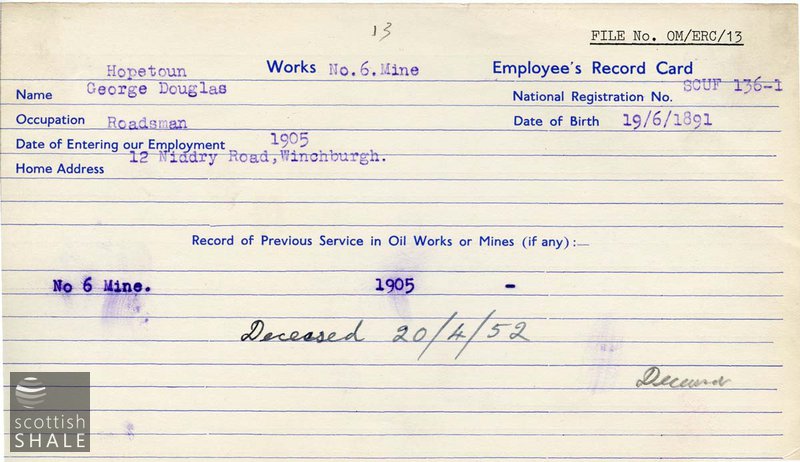 13
FILE No. OM/ERC/13
Hopetoun Works No.6.Mine Employee's Record Card
Name George Douglas National Registration No. SCUF 136-1
Occupation Roadsman Date of Birth 19/6/1891
Date of Entering our Employment 1905
Home Address 12 Niddry Road,Winchburgh.
Record of Previous Service in Oil Works or Mines (if any):—
No 6 Mine. 1905 -
Deceased 20/4/52
scottish
SHALE